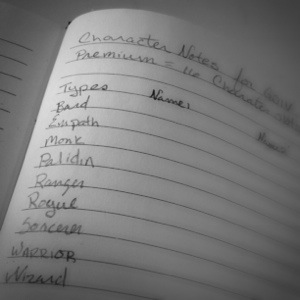 Character Notes for
Premium =
Types Name:
Bard
Empath
Monk
Palidin
Ranger
Rogue
Sorcerer
WARRIOR
Wizard